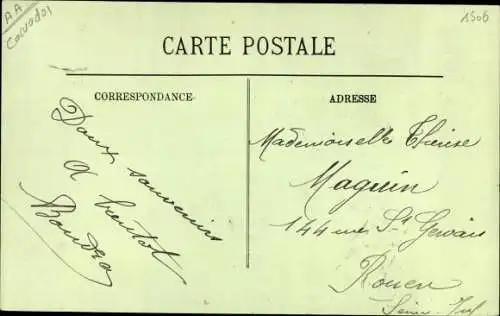 AA
Calvados
1506
CARTE POSTALE
CORRESPONDANCE
ADRESSE
Doux souvenirs
a bientot
Mademoiselle Thérèse
Maguin
144 rue St Gervais
Rouen
Seine Inf